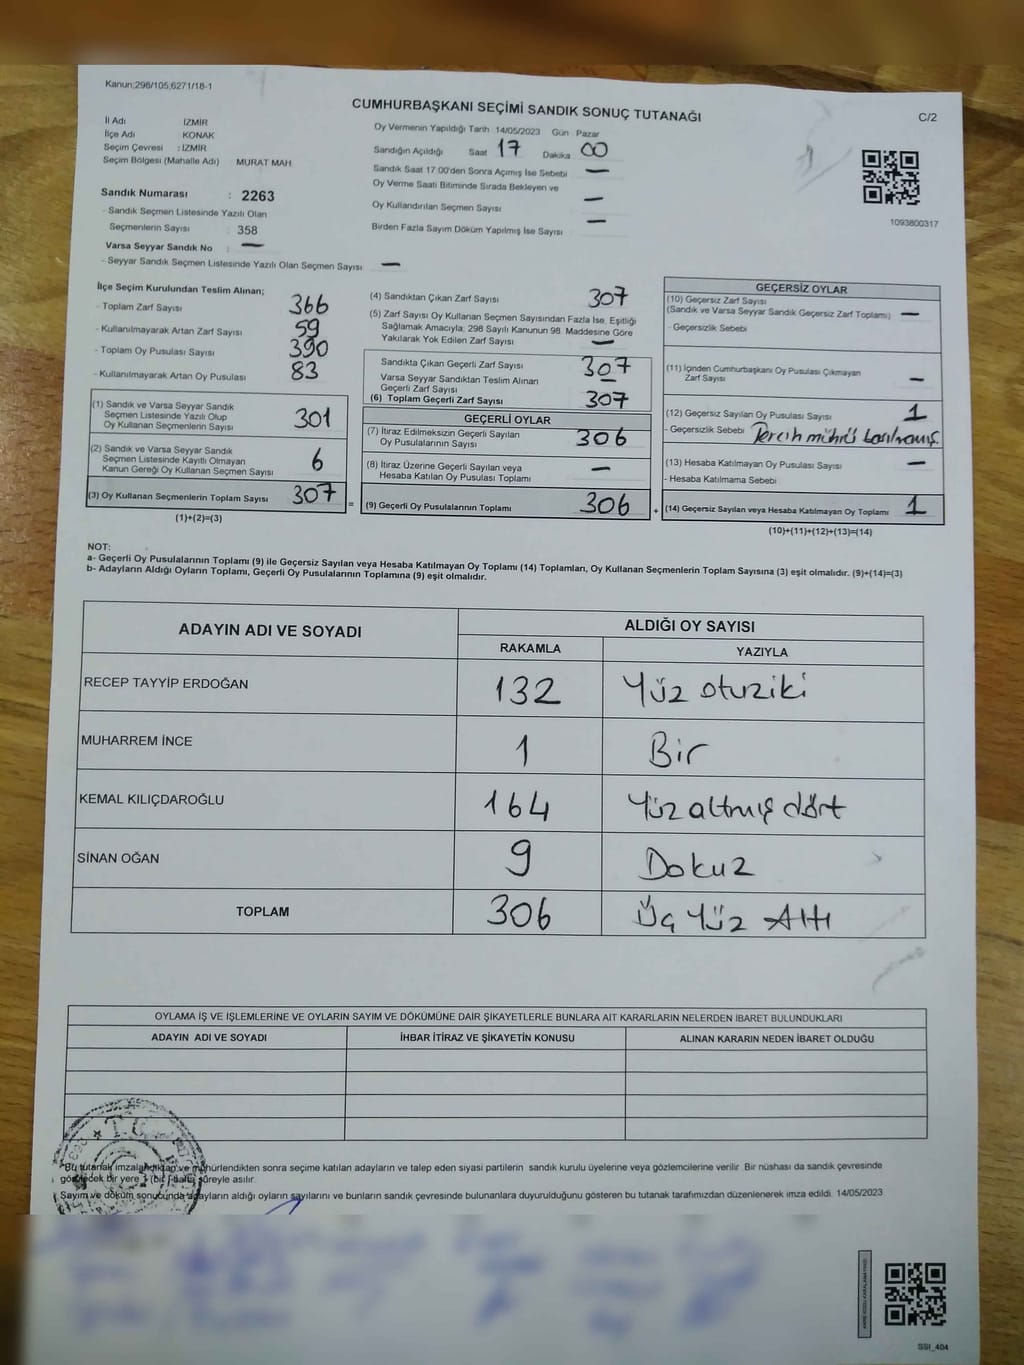 Kanun;298/105,6271/18-1
CUMHURBAŞKANI SEÇİMİ SANDIK SONUÇ TUTANAĞI
C/2
İl Adı İZMİR
İlçe Adı KONAK
Seçim Çevresi : İZMİR
Seçim Bölgesi (Mahalle Adı) MURAT MAH
Sandık Numarası : 2263
- Sandık Seçmen Listesinde Yazılı Olan
Seçmenlerin Sayısı : 358
Varsa Seyyar Sandık No : —
- Seyyar Sandık Seçmen Listesinde Yazılı Olan Seçmen Sayısı —
Oy Vermenin Yapıldığı Tarih 14/05/2023 Gün Pazar
Sandığın Açıldığı Saat 17 Dakika 00
Sandık Saat 17 00'den Sonra Açımış İse Sebebi —
Oy Verme Saati Bitiminde Sırada Bekleyen ve
Oy Kullandırılan Seçmen Sayısı —
Birden Fazla Sayım Döküm Yapılmış İse Sayısı —
1093800317
İlçe Seçim Kurulundan Teslim Alınan;
- Toplam Zarf Sayısı 366
- Kullanılmayarak Artan Zarf Sayısı 59
- Toplam Oy Pusulası Sayısı 390
- Kullanılmayarak Artan Oy Pusulası 83
(1) Sandık ve Varsa Seyyar Sandık
Seçmen Listesinde Yazılı Olup
Oy Kullanan Seçmenlerin Sayısı 301
(2) Sandık ve Varsa Seyyar Sandık
Seçmen Listesinde Kayıtlı Olmayan
Kanun Gereği Oy Kullanan Seçmen Sayısı 6
(3) Oy Kullanan Seçmenlerin Toplam Sayısı 307
(1)+(2)=(3)
(4) Sandıktan Çıkan Zarf Sayısı 307
(5) Zarf Sayısı Oy Kullanan Seçmen Sayısından Fazla İse, Eşitliği
Sağlamak Amacıyla, 298 Sayılı Kanunun 98. Maddesine Göre
Yakılarak Yok Edilen Zarf Sayısı —
Sandıkta Çıkan Geçerli Zarf Sayısı 307
Varsa Seyyar Sandıktan Teslim Alınan
Geçerli Zarf Sayısı —
(6) Toplam Geçerli Zarf Sayısı 307
GEÇERLİ OYLAR
(7) İtiraz Edilmeksizin Geçerli Sayılan
Oy Pusulalarının Sayısı 306
(8) İtiraz Üzerine Geçerli Sayılan veya
Hesaba Katılan Oy Pusulası Toplamı —
= (9) Geçerli Oy Pusulalarının Toplamı 306
GEÇERSİZ OYLAR
(10) Geçersiz Zarf Sayısı
(Sandık ve Varsa Seyyar Sandık Geçersiz Zarf Toplamı) —
- Geçersizlik Sebebi
(11) İçinden Cumhurbaşkanı Oy Pusulası Çıkmayan
Zarf Sayısı —
(12) Geçersiz Sayılan Oy Pusulası Sayısı 1
- Geçersizlik Sebebi Tercih mührü basılmamış.
(13) Hesaba Katılmayan Oy Pusulası Sayısı —
- Hesaba Katılmama Sebebi
+ (14) Geçersiz Sayılan veya Hesaba Katılmayan Oy Toplamı 1
(10)+(11)+(12)+(13)=(14)
NOT:
a- Geçerli Oy Pusulalarının Toplamı (9) ile Geçersiz Sayılan veya Hesaba Katılmayan Oy Toplamı (14) Toplamları, Oy Kullanan Seçmenlerin Toplam Sayısına (3) eşit olmalıdır. (9)+(14)=(3)
b- Adayların Aldığı Oyların Toplamı, Geçerli Oy Pusulalarının Toplamına (9) eşit olmalıdır.
ADAYIN ADI VE SOYADI ALDIĞI OY SAYISI
RAKAMLA YAZIYLA
RECEP TAYYİP ERDOĞAN 132 Yüz otuziki
MUHARREM İNCE 1 Bir
KEMAL KILIÇDAROĞLU 164 Yüz altmış dört
SİNAN OĞAN 9 Dokuz
TOPLAM 306 Üç Yüz Altı
OYLAMA İŞ VE İŞLEMLERİNE VE OYLARIN SAYIM VE DÖKÜMÜNE DAİR ŞİKAYETLERLE BUNLARA AİT KARARLARIN NELERDEN İBARET BULUNDUKLARI
ADAYIN ADI VE SOYADI İHBAR İTİRAZ VE ŞİKAYETİN KONUSU ALINAN KARARIN NEDEN İBARET OLDUĞU
Bu tutanak imzalandıktan ve mühürlendikten sonra seçime katılan adayların ve talep eden siyasi partilerin sandık kurulu üyelerine veya gözlemcilerine verilir. Bir nüshası da sandık çevresinde
görülecek bir yere 1 (bir) hafta süreyle asılır.
Sayım ve döküm sonucunda adayların aldığı oyların sayılarını ve bunların sandık çevresinde bulunanlara duyurulduğunu gösteren bu tutanak tarafımızdan düzenlenerek imza edildi. 14/05/2023
T.C.
SSI_404